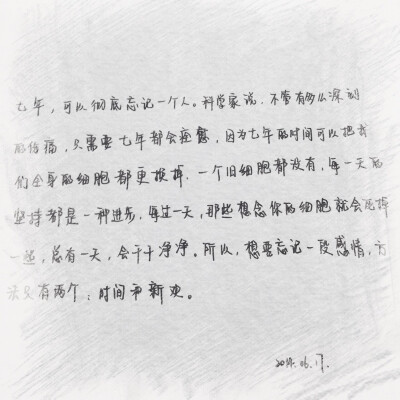 七年，可以彻底忘记一个人。科学家说，不管有多么深刻
的伤痛，只需要七年都会痊愈，因为七年的时间可以把我
们全身的细胞都更换掉，一个旧细胞都没有，每一天的
坚持都是一种进步，每过一天，那些想念你的细胞就会死掉
一些，总有一天，会干干净净。所以，想要忘记一段感情，方
法只有两个：时间和新欢。
06.17.